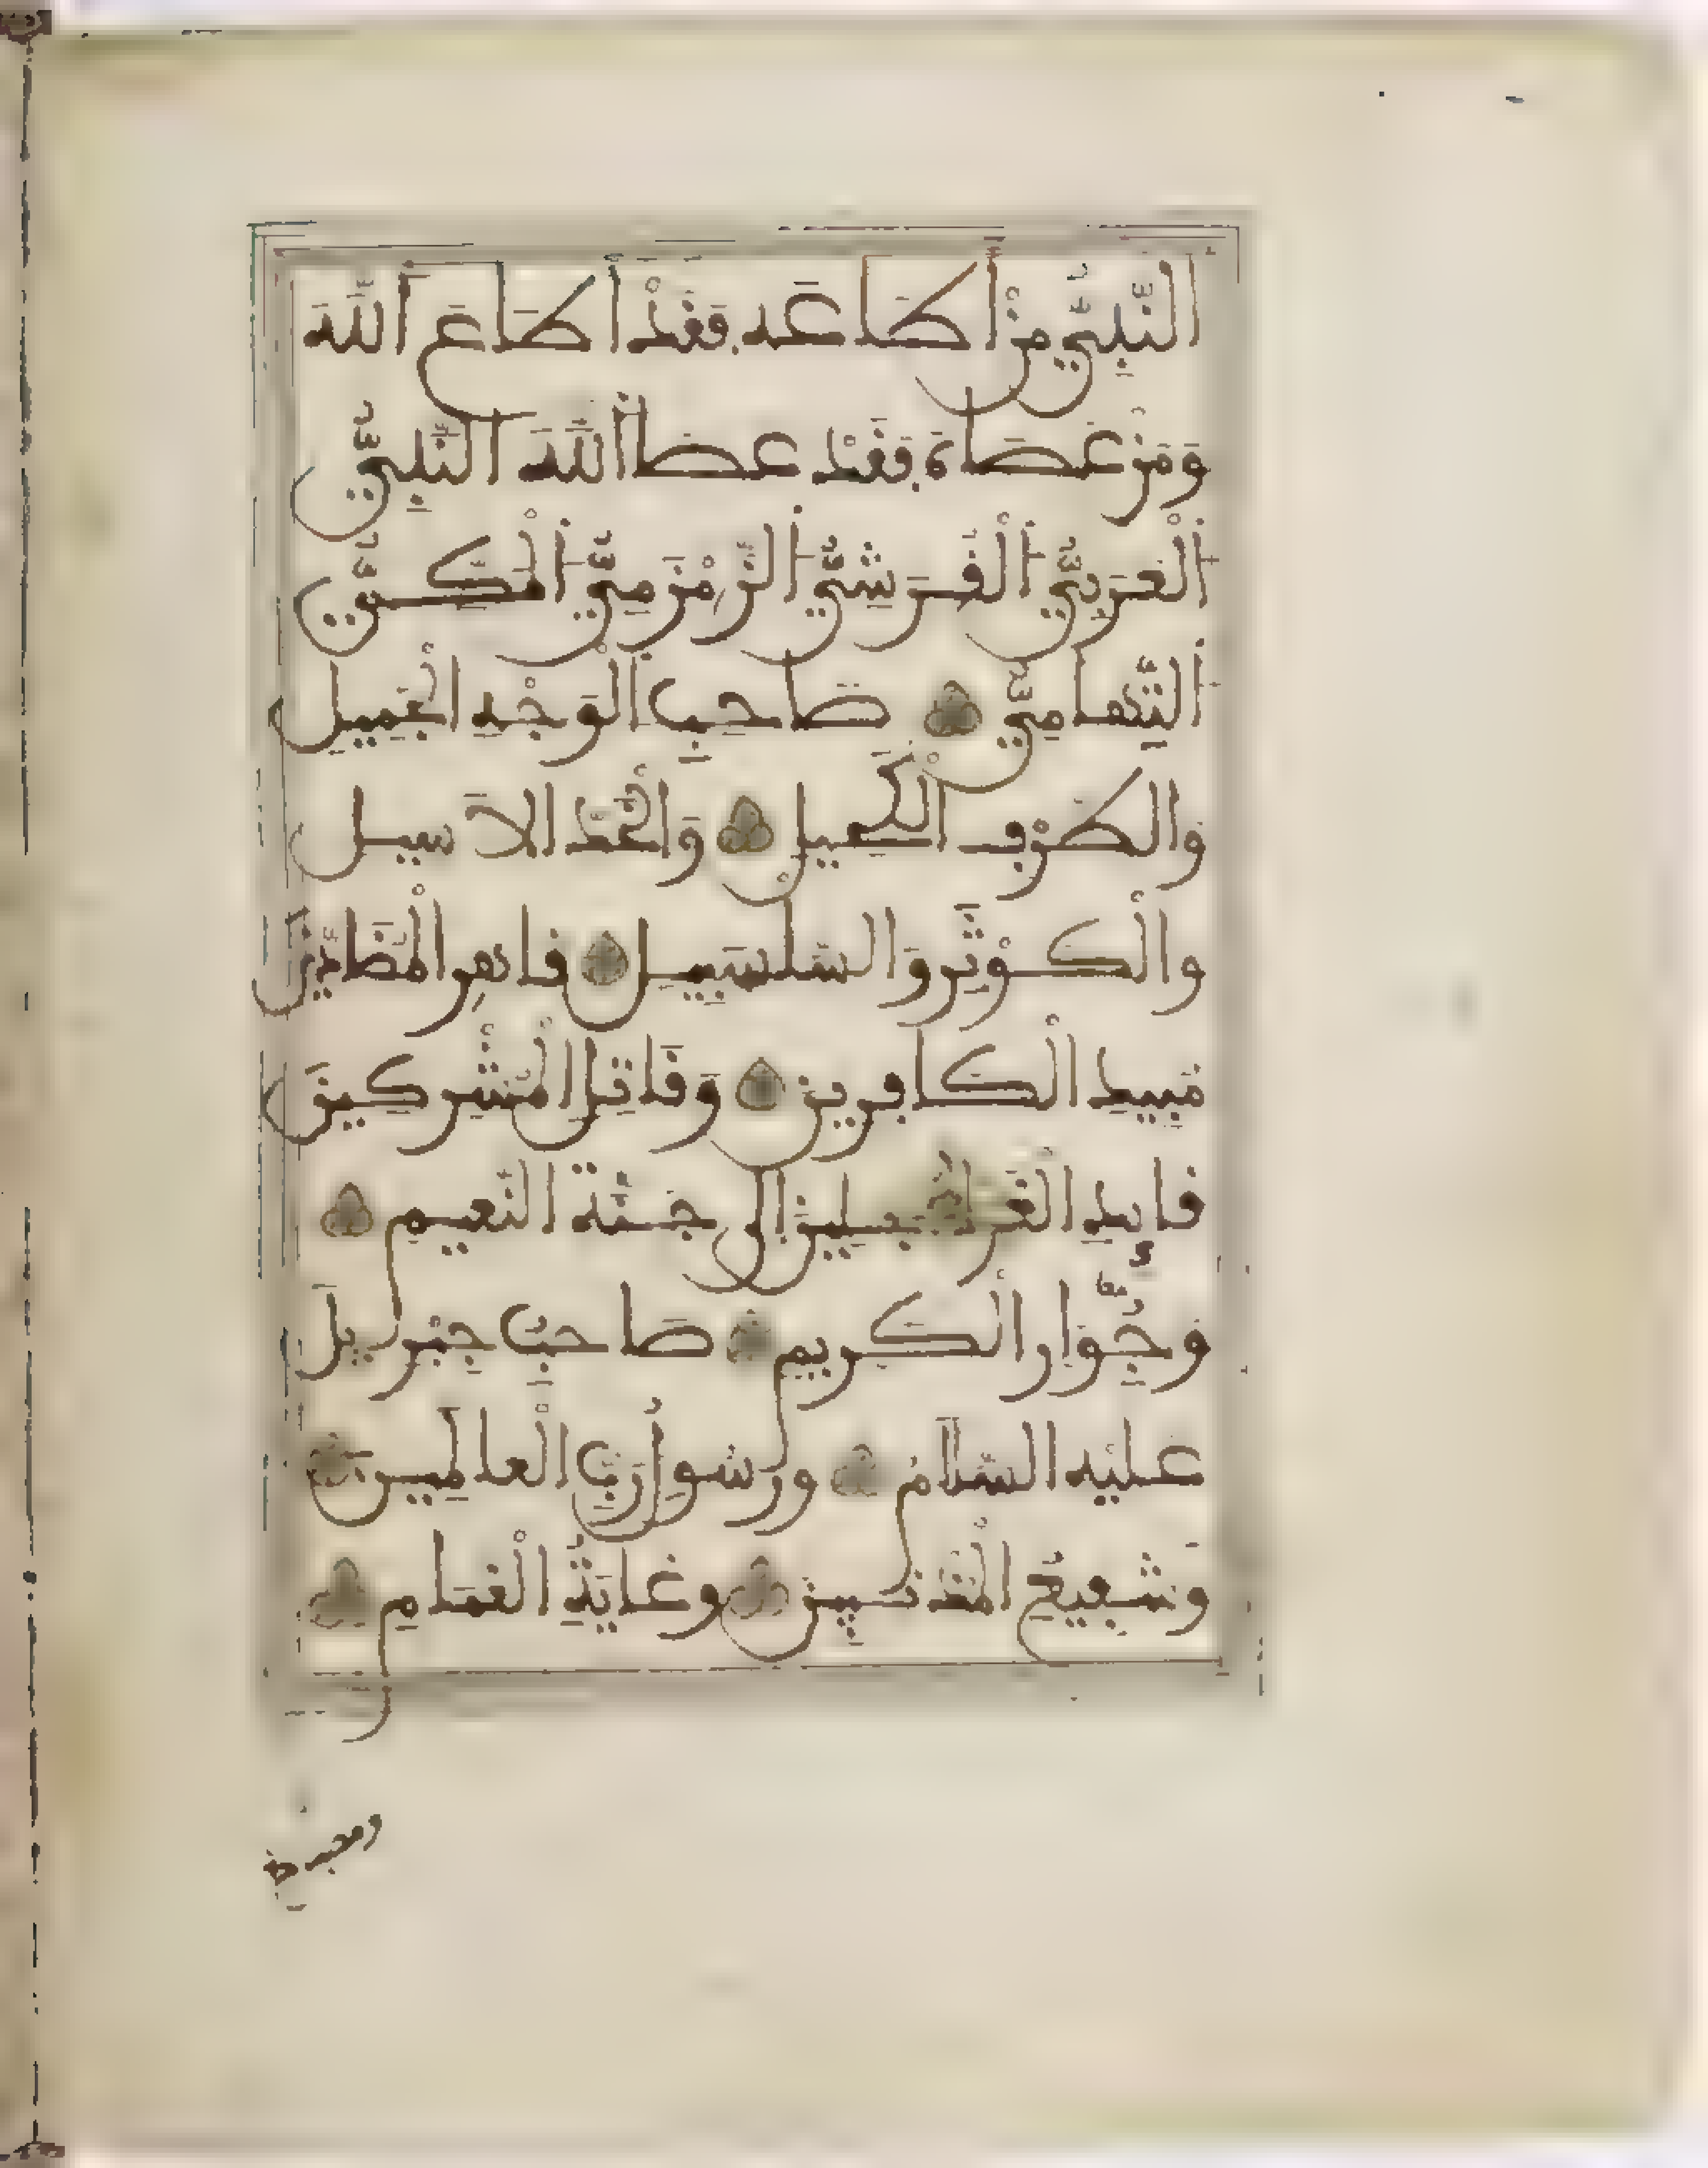 النَّبِيِّ مَنْ أَطَاعَهُ فَقَدْ أَطَاعَ اللَّهَ
وَمَنْ عَصَاهُ فَقَدْ عَصَا اللَّهَ النَّبِيِّ
الْعَرَبِيِّ الْقُرَشِيِّ الزَّمْزَمِيِّ الْمَكِّيِّ
التِّهَامِيِّ صَاحِبِ الْوَجْهِ الْجَمِيلِ
وَالطَّرْفِ الْكَحِيلِ وَالْخَدِّ الْأَسِيلِ
وَالْكَوْثَرِ وَالسَّلْسَبِيلِ قَاهِرِ الْمُضَادِّينَ
مُبِيدِ الْكَافِرِينَ وَقَاتِلِ الْمُشْرِكِينَ
قَائِدِ الْغُرِّ الْمُحَجَّلِينَ إِلَى جَنَّةِ النَّعِيمِ
وَجِوَارِ الْكَرِيمِ صَاحِبِ جِبْرِيلَ
عَلَيْهِ السَّلَامُ وَرَسُولِ رَبِّ الْعَالَمِينَ
وَشَفِيعِ الْمُذْنِبِينَ وَغَايَةِ الْغَمَامِ